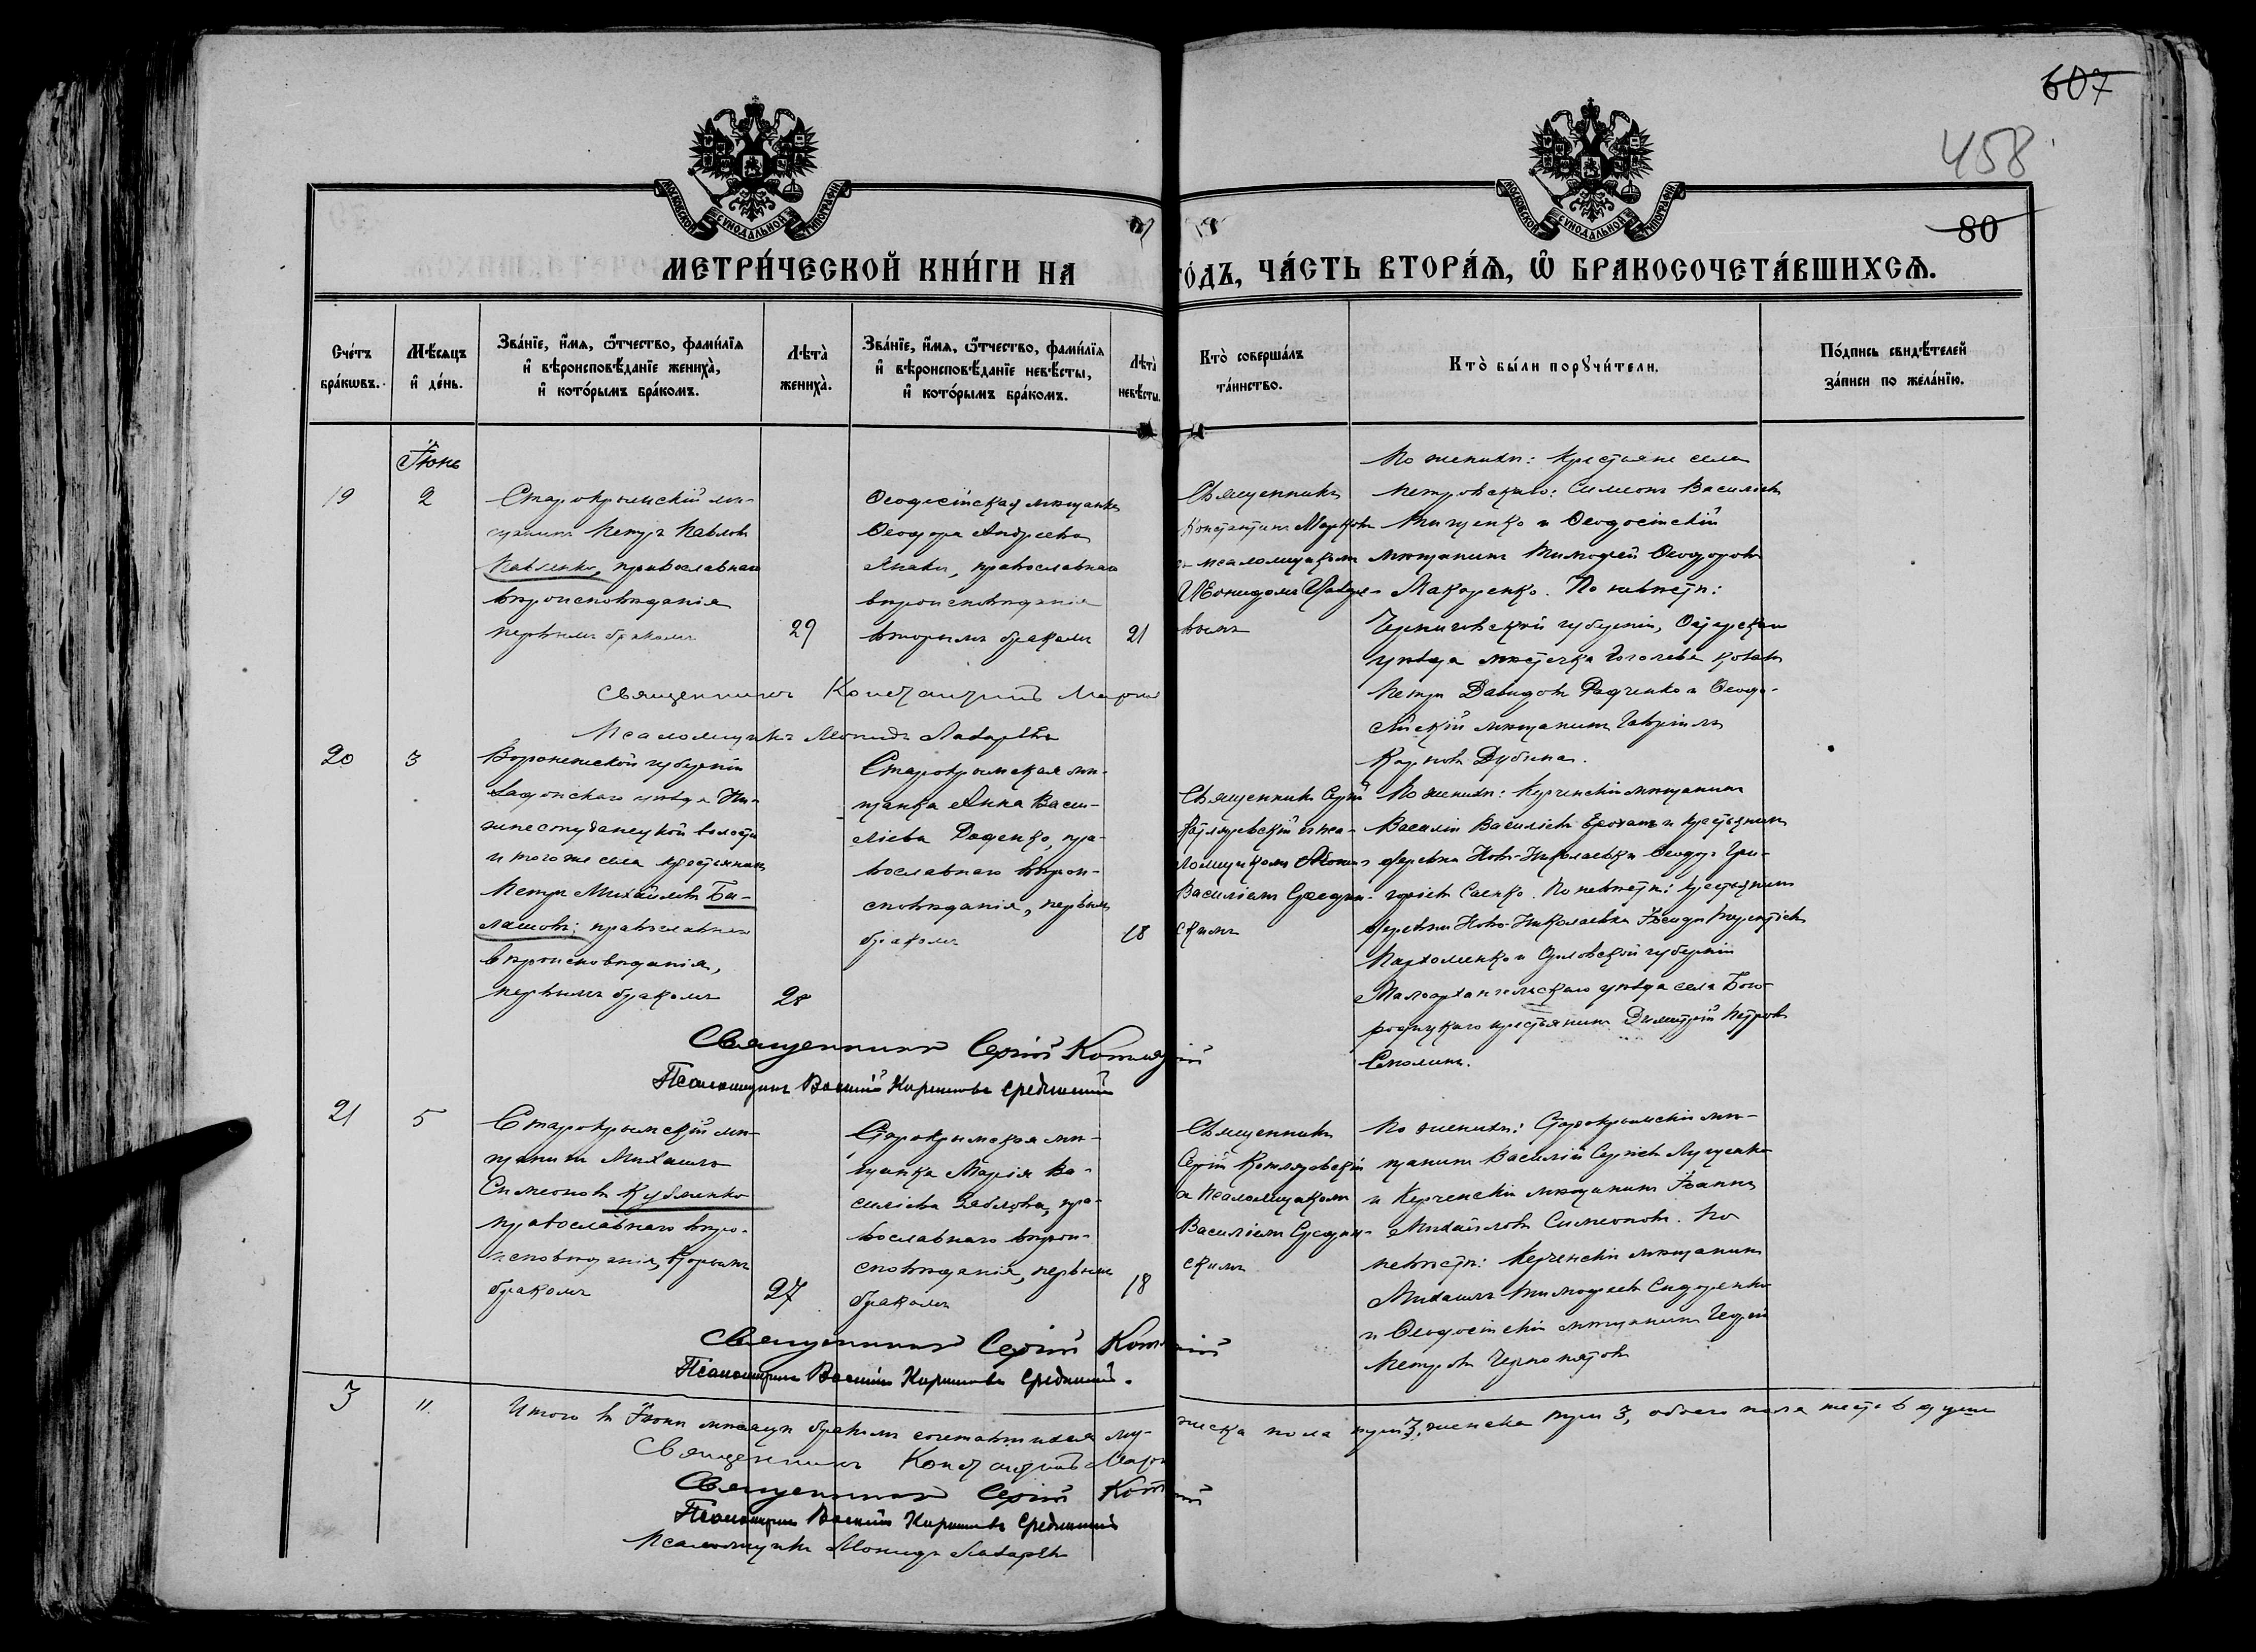 607
458
80
МОСКОВСКОЙ СѴНОДАЛЬНОЙ ТИПОГРАФІИ
МОСКОВСКОЙ СѴНОДАЛЬНОЙ ТИПОГРАФІИ
МЕТРИ́ЧЕСКОЙ КНИ́ГИ НА
ГО́ДЪ, ЧА́СТЬ ВТОРА́Я, Ѽ БРАКОСОЧЕТА́ВШИХСЯ.
Сче́тъ
бра́кѡвъ.
Мѣ́сяцъ
и҆ де́нь.
Зва́нїе, и҆́мя, ѻ҆́тчество, фами́лїя
и҆ вѣроисповѣ́данїе жениха̀,
и҆ кото́рымъ бра́комъ.
Лѣта̀
жениха̀.
Зва́нїе, и҆́мя, ѻ҆́тчество, фами́лїя
и҆ вѣроисповѣ́данїе невѣ́сты,
и҆ кото́рымъ бра́комъ.
Лѣта̀
невѣ́сты.
Кто̀ соверша́лъ
та́инство.
Кто̀ бы́ли порꙋчи́тели.
По́дпись свидѣ́телей
за́писи по жела́нїю.
Іюнь
19
2
Старокрымскій мѣ-
щанинъ Петръ Павловъ
Павленко, православнаго
вѣроисповѣданія
первымъ бракомъ
29
Ѳеодосійская мѣщанка
Ѳеодора Андреева
православнаго
вѣроисповѣданія
вторымъ бракомъ
21
Священникъ
Константинъ Марковъ
съ псаломщикомъ
Леонидомъ Лазаре-
вымъ
По женихѣ: Крестьяне села
Петровскаго: Симеонъ Василіевъ
Тищенко и Ѳеодосійскій
мѣщанинъ Тимофей Ѳеодоровъ
Макаренко. По невѣстѣ:
Черниговской губерніи, Остерскаго
уѣзда мѣстечка Гоголева козакъ
Петръ Давидовъ Радченко и Ѳеодо-
сійскій мѣщанинъ Гавріилъ
Карповъ Дубина.
Священникъ Константинъ Марковъ
Псаломщикъ Леонидъ Лазаревъ
20
3
Воронежской губерніи
Задонскаго уѣзда Ни-
жнестуденецкой волости
и того же села крестьянинъ
Петръ Михайловъ Ба-
лашовъ; православнаго
вѣроисповѣданія,
первымъ бракомъ
28
Старокрымская мѣ-
щанка Анна Васи-
ліева Даценко, пра-
вославнаго вѣрои-
сповѣданія, первымъ
бракомъ
18
Священникъ Сергій
Котляревскій съ пса-
ломщикомъ
Василіемъ Средин-
скимъ
По женихѣ: Керченскій мѣщанинъ
Василій Василіевъ и крестьянинъ
деревни Ново-Николаевки Ѳеодоръ Гри-
горіевъ Саенко. По невѣстѣ: крестьянинъ
деревни Ново-Николаевки
Пархоменко и Орловской губерніи
Малоархангельскаго уѣзда села Бого-
родицкаго крестьянинъ Димитрій Петровъ
Смолинъ.
Священникъ Сергій Котляревскій
Псаломщикъ Василій Кирилловъ Срединскій
21
5
Старокрымскій мѣ-
щанинъ Михаилъ
Симеоновъ Кубленко
православнаго вѣро-
исповѣданія, вторымъ
бракомъ
27
Старокрымская мѣ-
щанка Марія Ва-
силіева Зяблова, пра-
вославнаго вѣрои-
сповѣданія, первымъ
бракомъ
18
Священникъ
Сергій Котляревскій
съ псаломщикомъ
Василіемъ Средин-
скимъ
По женихѣ: Старокрымскій мѣ-
щанинъ Василій Сергіевъ Луценко
и Керченскій мѣщанинъ Іоаннъ
Михайловъ Симеоновъ. По
невѣстѣ: Керченскій мѣщанинъ
Михаилъ Тимофеевъ Сидоренко
и Ѳеодосійскій мѣщанинъ
Петровъ
Священникъ Сергій Котляревскій
Псаломщикъ Василій Кирилловъ Срединскій.
3
"
Итого въ Іюнѣ мѣсяцѣ бракомъ сочетавшихся му-
жеска пола три 3, женска три 3, обоего пола шесть 6 душъ
Священникъ Константинъ Марковъ
Священникъ Сергій Котляревскій
Псаломщикъ Василій Кирилловъ Срединскій
Псаломщикъ Леонидъ Лазаревъ